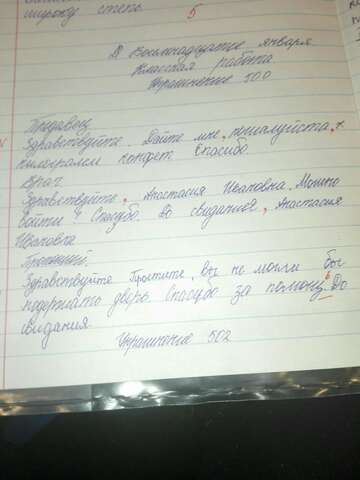 широку степь.
5
Восемнадцатое января
Классная работа
Упражнение 500
Продавец.
Здравствуйте. Дайте мне, пожалуйста,
килограмм конфет. Спасибо.
Врач.
Здравствуйте, Анастасия Ивановна. Можно
войти? Спасибо. До свидания, Анастасия
Ивановна.
Прохожий.
Здравствуйте. Простите, вы не могли бы
подержать дверь. Спасибо за помощь. До
свидания.
Упражнение 502